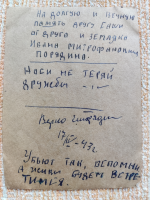 НА ДОЛГУЮ И ВЕЧНУЮ
ПАМЯТЬ ДРУГУ
ОТ ДРУГА И ЗЕМЛЯКА
ИВАНА МИТРОФАНОВИЧА
ПОРЯДИНА.
НОСИ НЕ ТЕРЯЙ
ДРУЖБЫ
17 43 г.
УБЬЮТ ТАК, ВСПОМНИ
А ЖИВЫ БУДЕМ ВСТРЕ
ТИМСЯ.